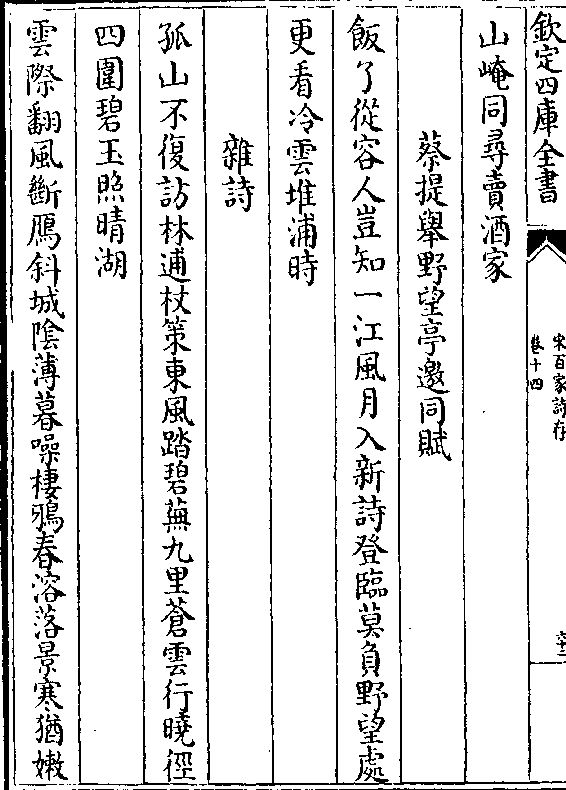 欽定四庫全書
宋百家詩存
卷十四
六十二
山崦同尋賣酒家
蔡提舉野望亭邀同賦
飯了從容人豈知一江風月入新詩登臨莫負野望處
更看冷雲堆浦時
雜詩
孤山不復訪林逋杖策東風踏碧蕪九里蒼雲行曉徑
四圍碧玉照晴湖
雲際翻風斷鴈斜城隂薄暮噪棲鴉春溶落景寒猶嫩